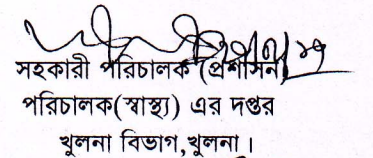 সহকারী পরিচালক (প্রশাসন)
পরিচালক(স্বাস্থ্য) এর দপ্তর
খুলনা বিভাগ,খুলনা ।